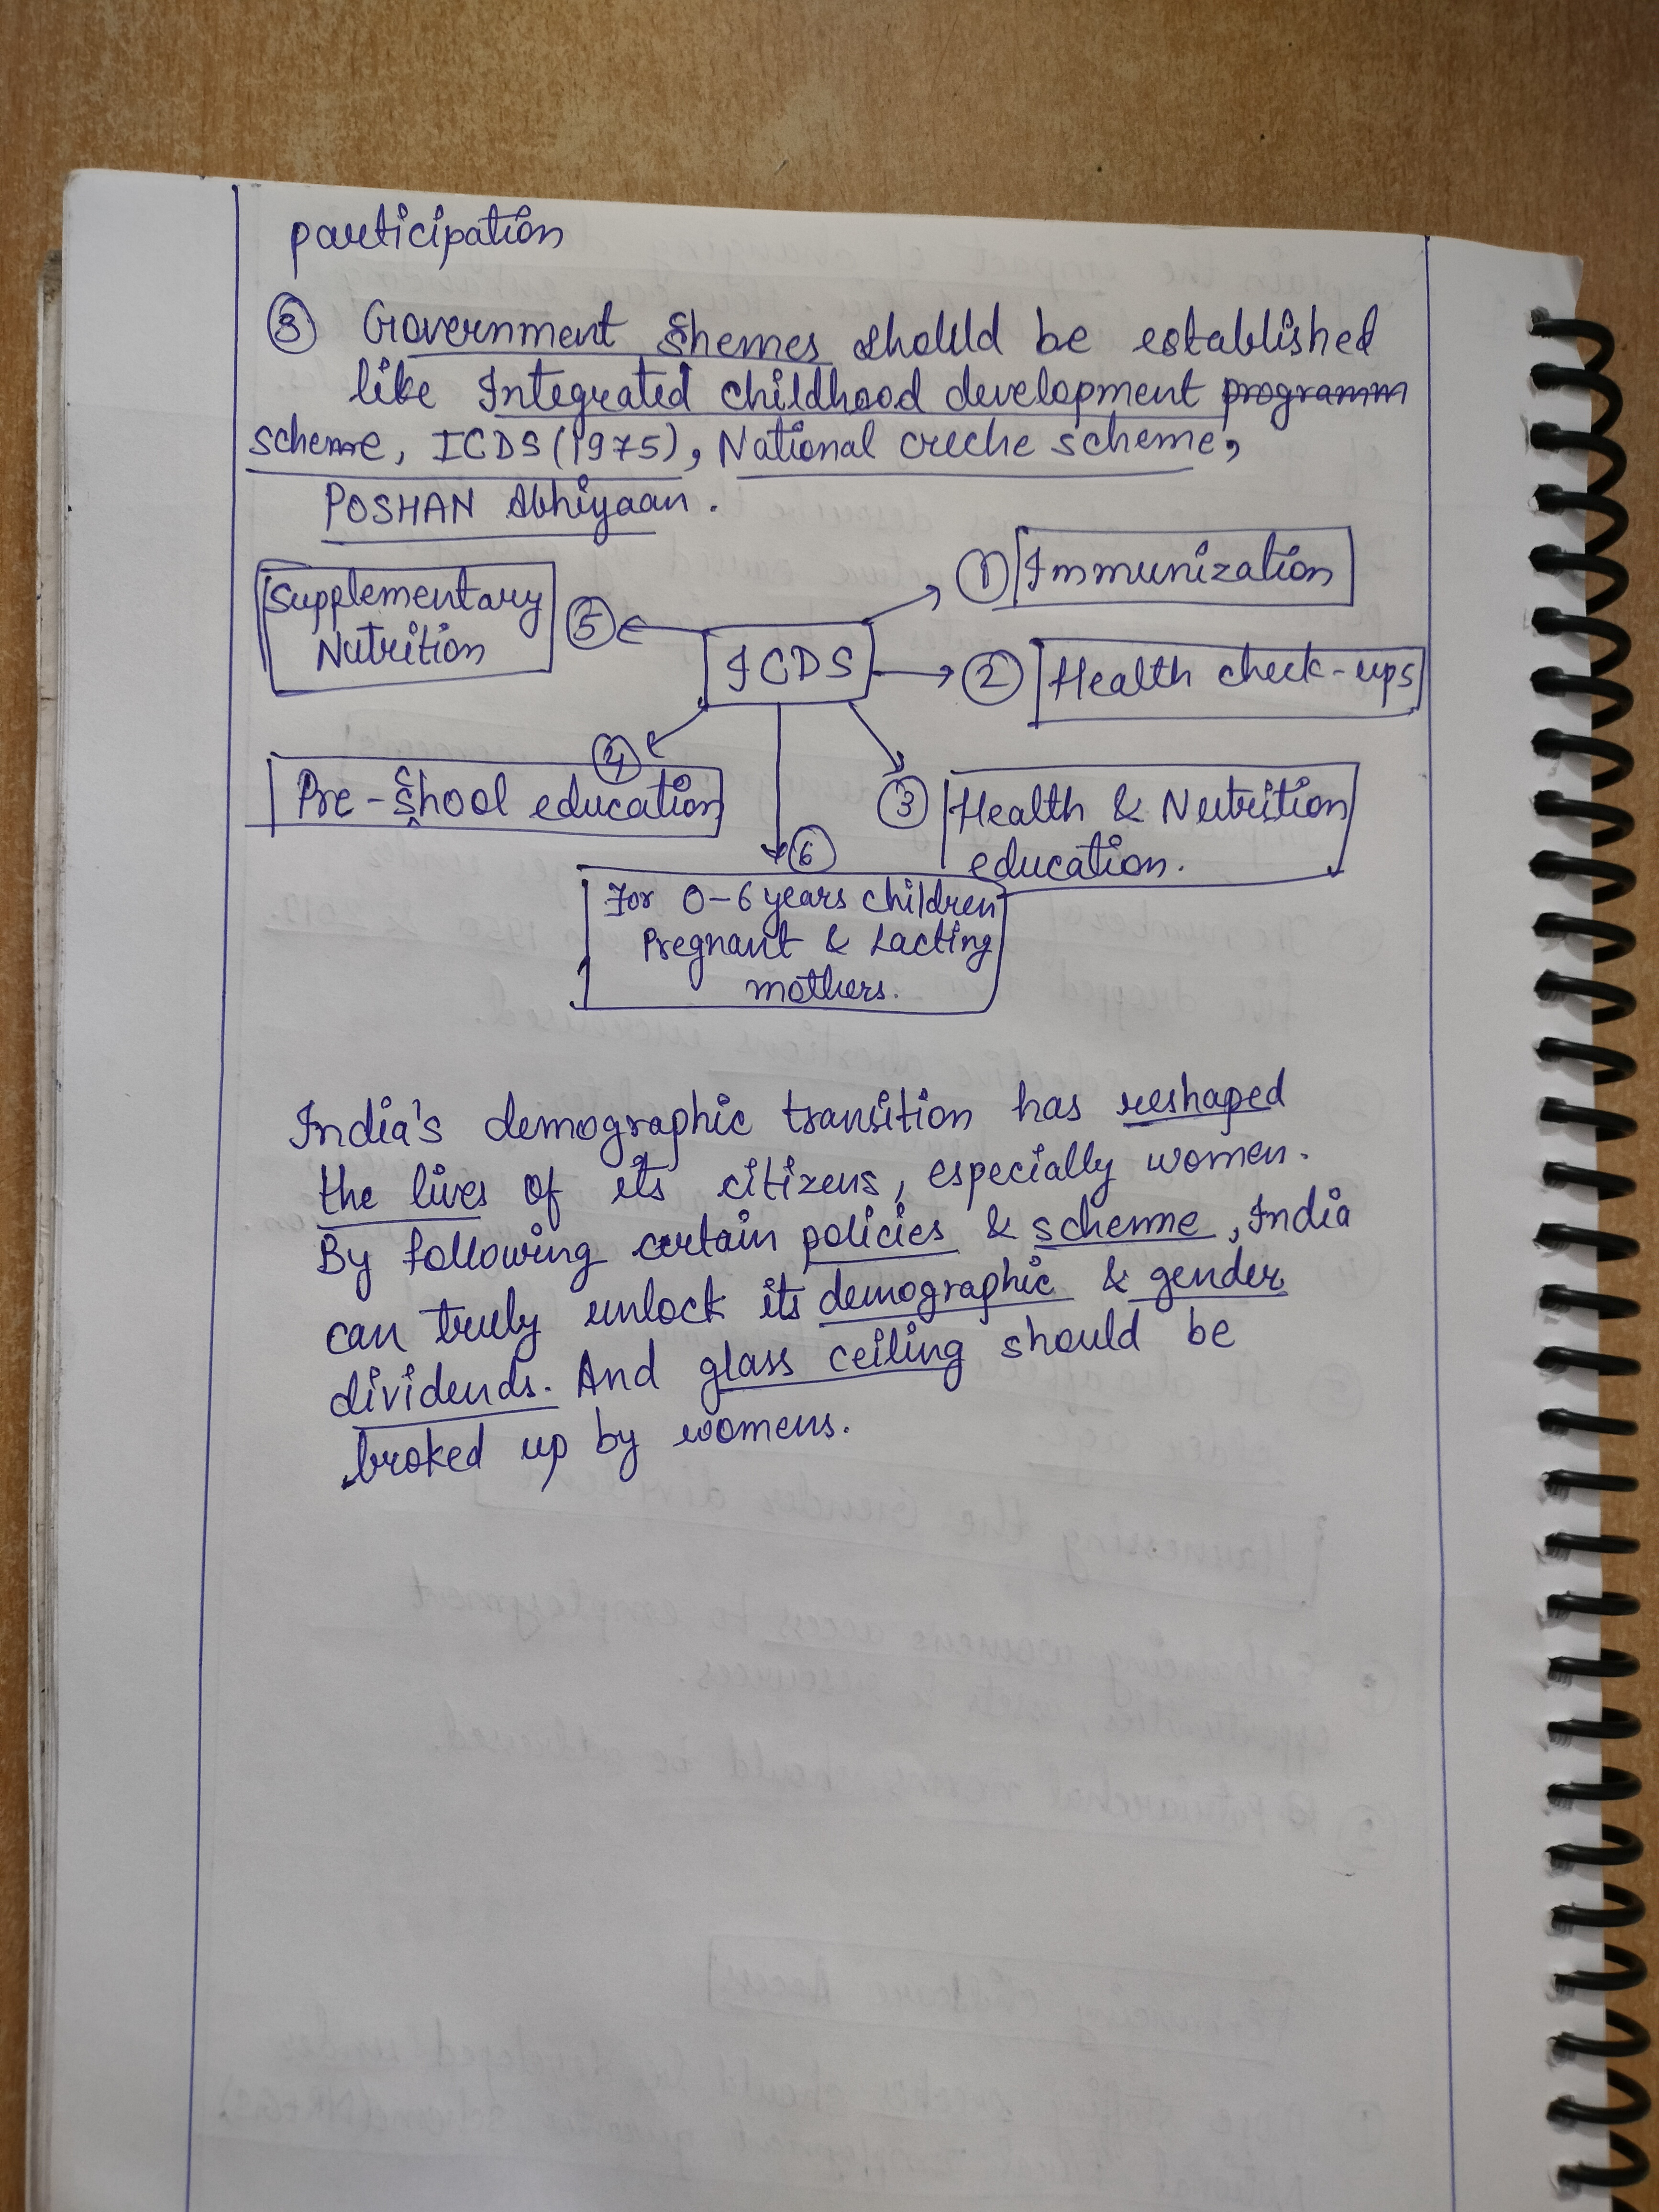 participation
③ Government Shemes should be established
like Integrated childhood development programm
scheme, ICDS (1975), National creche scheme,
POSHAN Abhiyaan.
① Immunization
Supplementary
Nutrition
⑤
ICDS
② Health check-ups
④
Pre-School education
③ Health & Nutrition
education.
⑥
For 0-6 years children
Pregnant & Lacting
mothers.
India's demographic transition has reshaped
the lives of its citizens, especially women.
By following certain policies & scheme, India
can truly unlock its demographic & gender
dividends. And glass ceiling should be
broked up by womens.